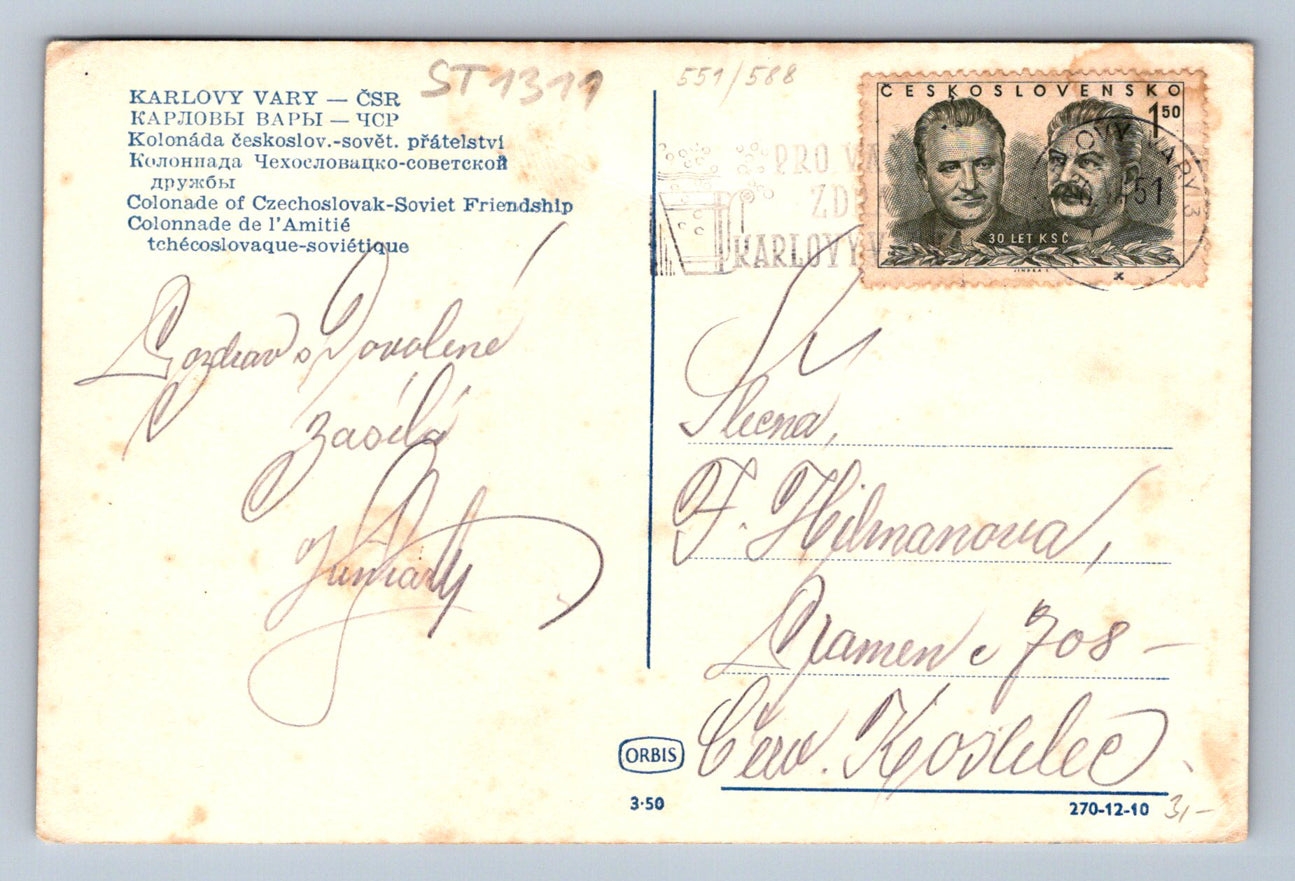 KARLOVY VARY — ČSR
КАРЛОВЫ ВАРЫ — ЧСР
Kolonáda českoslov.-sovět. přátelství
Колоннада Чехословацко-советской
дружбы
Colonade of Czechoslovak-Soviet Friendship
Colonnade de l'Amitié
tchécoslovaque-soviétique
ST1311
551/588
ČESKOSLOVENSKO
1 50
30 LET KSČ
PRO VA
ZD
KARLOVY V
OVY VARY 3
51
Pozdrav s Dovolené
zasílá
Slečna,
F. Hilmanova,
Pramen č 708 –
Červ. Kostelec
ORBIS
3·50
270-12-10
3,–